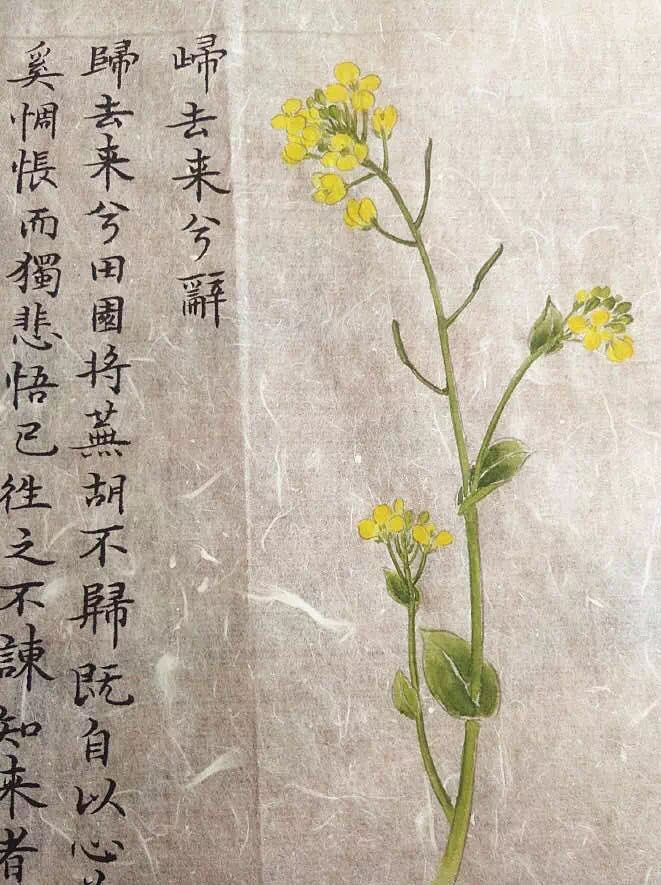 歸去来兮辭
歸去来兮田園将蕪胡不歸既自以心
奚惆悵而獨悲悟已徃之不諫知来者